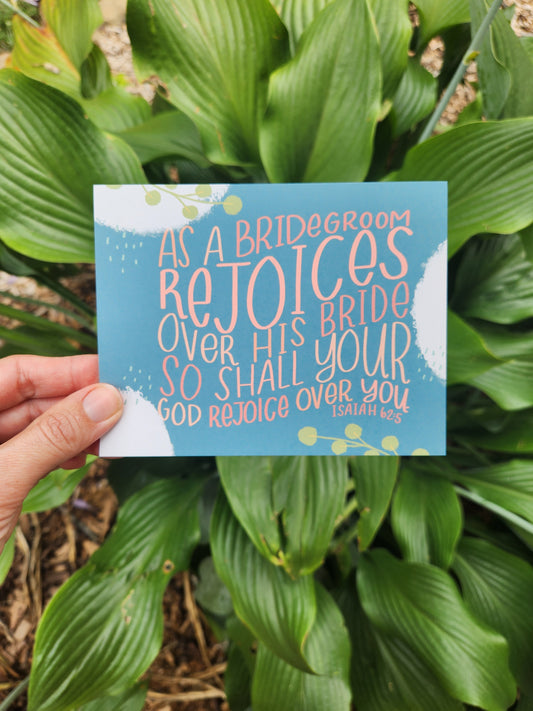 AS A BRIDEGROOM
REJOICES
OVER HIS BRIDE
SO SHALL YOUR
GOD REJOICE OVER YOU
ISAIAH 62:5